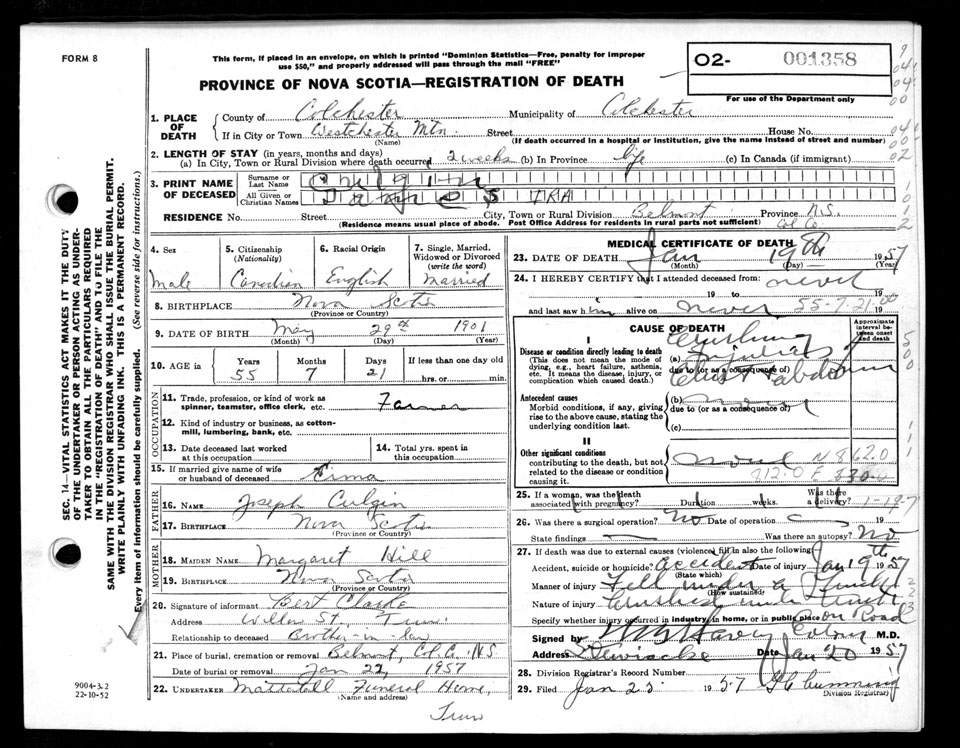 FORM 8
This form, if placed in an envelope, on which is printed "Dominion Statistics—Free, penalty for improper
use $50," and properly addressed will pass through the mail "FREE"
PROVINCE OF NOVA SCOTIA—REGISTRATION OF DEATH
O2- 001358
For use of the Department only
1. PLACE OF DEATH
County of Colchester Municipality of Colchester
If in City or Town Westchester Mtn. Street House No.
(Name) (If death occurred in a hospital or institution, give the name instead of street and number)
2. LENGTH OF STAY (in years, months and days)
(a) In City, Town or Rural Division where death occurred 2 weeks (b) In Province life (c) In Canada (if immigrant)
3. PRINT NAME OF DECEASED
Surname or Last Name
All Given or Christian Names James IRA
RESIDENCE No. Street City, Town or Rural Division Belmont Province N.S.
(Residence means usual place of abode. Post Office Address for residents in rural parts not sufficient) Col Co
4. Sex
Male
5. Citizenship (Nationality)
Canadian
6. Racial Origin
English
7. Single, Married, Widowed or Divorced (write the word)
Married
8. BIRTHPLACE Nova Scotia
(Province or Country)
9. DATE OF BIRTH May 29th 1901
(Month) (Day) (Year)
10. AGE in Years 55 Months 7 Days 21 If less than one day old
hrs. or min.
OCCUPATION
11. Trade, profession, or kind of work as spinner, teamster, office clerk, etc. Farmer
12. Kind of industry or business, as cotton-mill, lumbering, bank, etc.
13. Date deceased last worked at this occupation
14. Total yrs. spent in this occupation
15. If married give name of wife or husband of deceased
FATHER
16. NAME Joseph Culgin
17. BIRTHPLACE Nova Scotia
(Province or Country)
MOTHER
18. MAIDEN NAME Margaret Hill
19. BIRTHPLACE Nova Scotia
(Province or Country)
20. Signature of informant Bert
Address Willow St., Truro
Relationship to deceased Brother-in-law
21. Place of burial, cremation or removal Belmont, Col. Co. N.S.
Date of burial or removal Jan 22, 1957
22. UNDERTAKER Mattatall Funeral Home,
(Name and address)
Truro
MEDICAL CERTIFICATE OF DEATH
23. DATE OF DEATH Jan 19th 1957
(Month) (Day) (Year)
24. I HEREBY CERTIFY that I attended deceased from: never
19 to 19
and last saw him alive on never 19
55-7-21
CAUSE OF DEATH
Approximate interval between onset and death
I
Disease or condition directly leading to death
(This does not mean the mode of dying, e.g., heart failure, asthenia, etc. It means the disease, injury, or complication which caused death.)
(a) Crushing Injuries
due to (or as a consequence of)
Chest & abdomen
Antecedent causes
Morbid conditions, if any, giving rise to the above cause, stating the underlying condition last.
(b) none
due to (or as a consequence of)
(c)
II
Other significant conditions
contributing to the death, but not related to the disease or condition causing it.
none N862.0
25. If a woman, was the death associated with pregnancy? Duration weeks. Was there a delivery?
26. Was there a surgical operation? No Date of operation 19
State findings Was there an autopsy? No
27. If death was due to external causes (violence) fill in also the following:
Accident, suicide or homicide? Accident Date of injury Jan 19th 1957
(State which)
Manner of injury Fell under a Truck
(How sustained)
Nature of injury Crushed under truck
Specify whether injury occurred in industry, in home, or in public place on Road
Signed by M.D.
Address Stewiacke Date Jan 20 1957
28. Division Registrar's Record Number
29. Filed Jan 23 1957
Division Registrar)
SEC. 14—VITAL STATISTICS ACT MAKES IT THE DUTY
OF THE UNDERTAKER OR PERSON ACTING AS UNDER-
TAKER TO OBTAIN ALL THE PARTICULARS REQUIRED
IN THE "REGISTRATION OF DEATH" AND TO FILE THE
SAME WITH THE DIVISION REGISTRAR WHO SHALL ISSUE THE BURIAL PERMIT.
WRITE PLAINLY WITH UNFADING INK. THIS IS A PERMANENT RECORD.
Every item of information should be carefully supplied. (See reverse side for instructions.)
9004-3.2
22-10-52